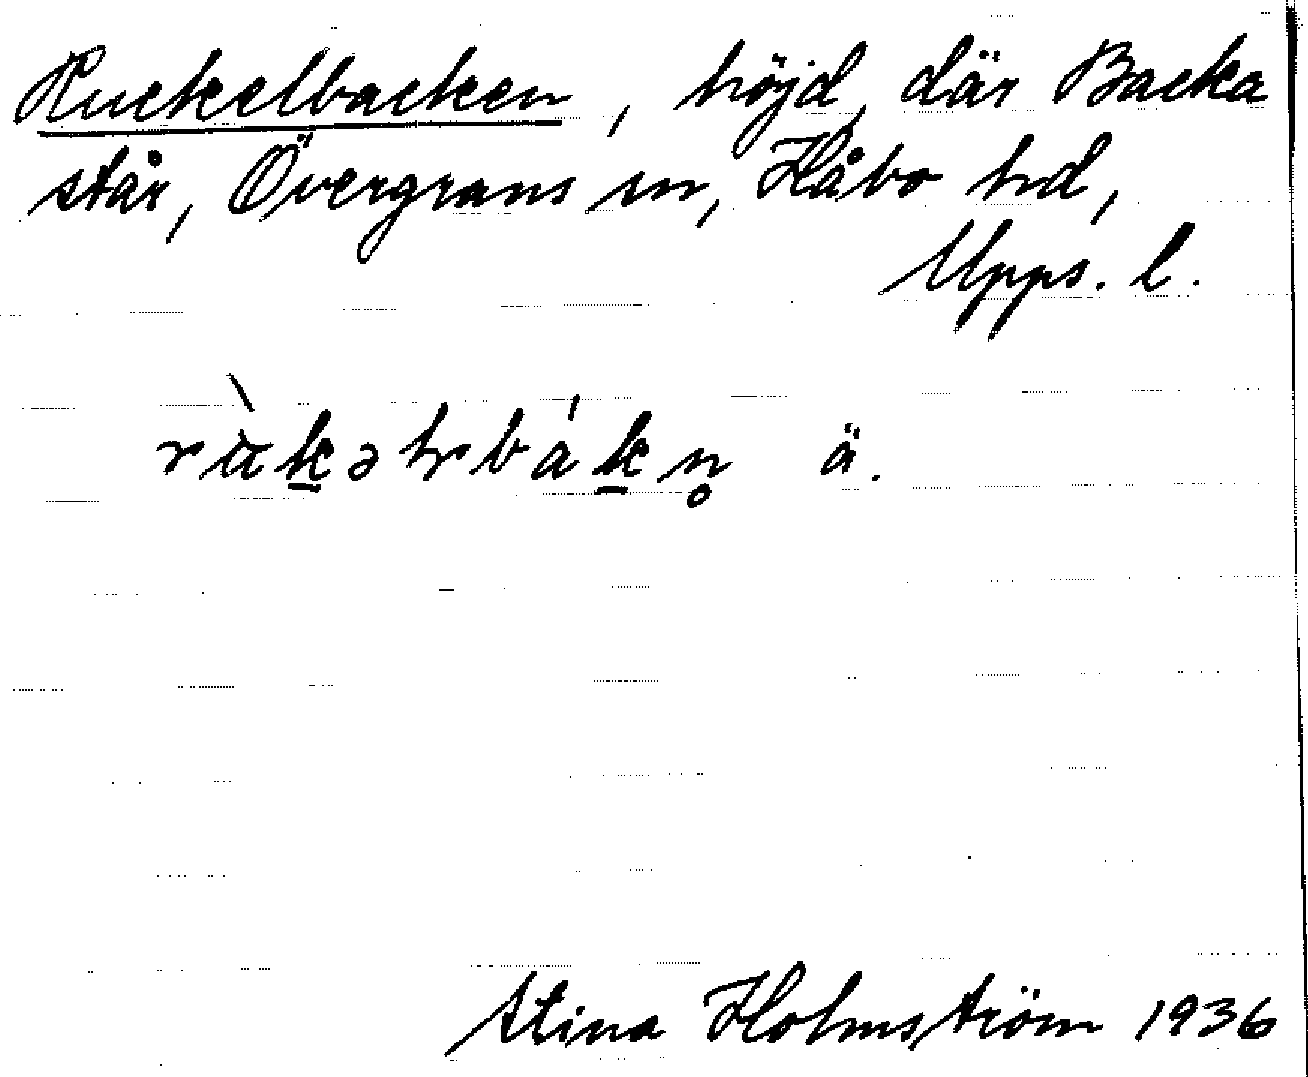 Ruckelbacken, höjd, där Backa
står, Övergrans sn, Håbo hd,
Upps. l.
ä.
Stina Holmström 1936